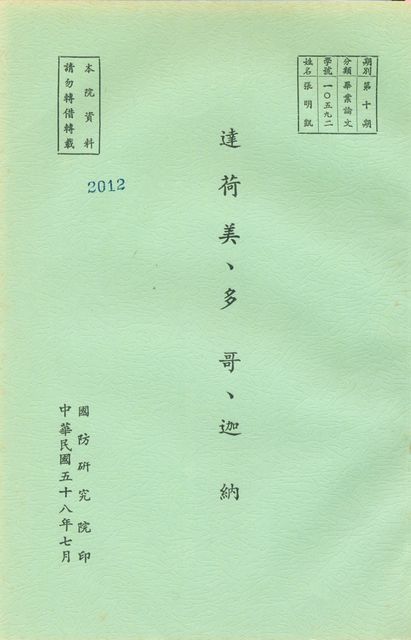 期別 第十期
分類 畢業論文
學號 一〇五九二
姓名 張明凱
達荷美、多哥、迦納
本院資料
請勿轉借轉載
2012
國防研究院印
中華民國五十八年七月